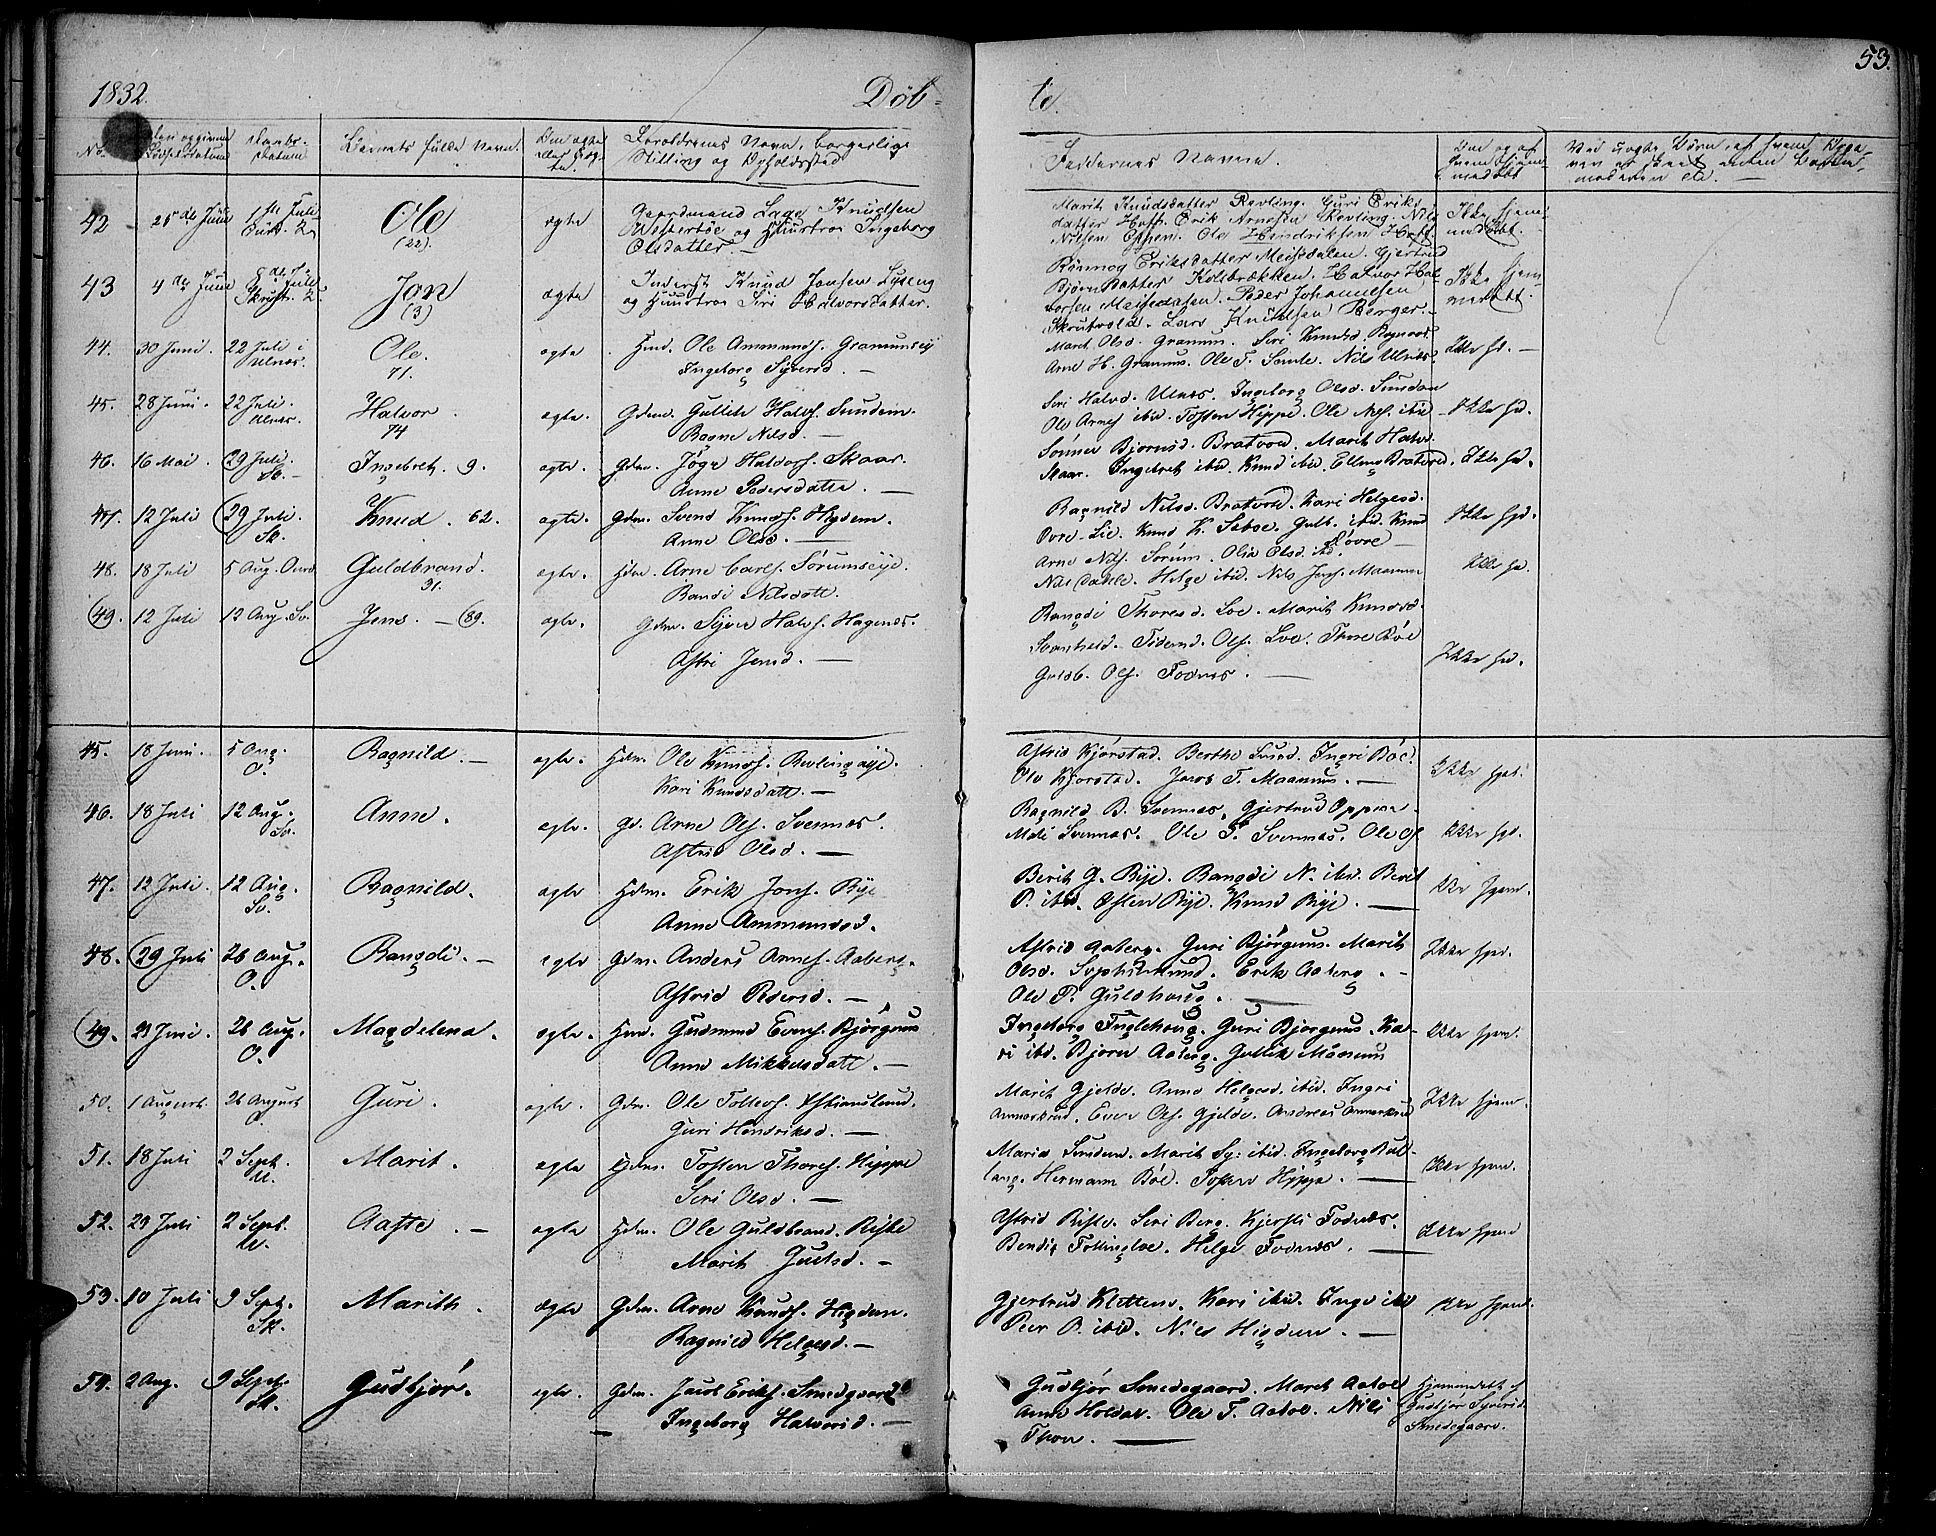 1832.
Døb-
te
53.
No
Barnets fulde Navn.
Forældrenes Navn, borgerlige
Stilling og Opholdssted
Faddernes Navne.
42 25de Juni 1ste Juli Ole ægte Gaardmand Lage Knudsen
(22). og Huustroe Ingeborg
Olsdatter. —
Marit Knudsdatter Revling. Guri Eriks
datter Hoff. Erik Arnesen Revling. Nils
Nilsen Opsen. Ole Hendriksen Hoff. Ikke hjem
43 4de Juni 8de Juli Jon ægte Inderst Knud Jonsen Lyseng
(3) og Huustroe Siri Halvorsdatter.
Rønnog Eriksdatter Meisdalen. Gjertrud
Bjørnsdatter Kolbrækken. Halvor Hal-
vorsen Meisdalen. Peder Johannesen
Skrutvold. Lars Knudsen Berger. —
44. 30 Juni. 22 Juli i Ole. ægte Hmd. Ole Ammunds. Gramunseij
Ulnes. 71. Ingeborg Syversd. —
Marit Olsd. Gramun. Siri Knudsd. Ragnvas
Arne H. Gramuns. Ole T. Sante. Nils Ulnes. Ikke hj. —
45. 28 Juni. 22 Juli. Halvor. ægte. Gdm. Gullik Halvs. Sundein.
Ulnes. 74 Ragne Nilsd. —
Siri Halvd. Ulnes. Ingeborg Olsd. Sundan
Ole Arnes. ibid. Tosten Hippe. Ole Nes. ibid Ikke hd.
46. 16 Mai. 29 Juli. Ingebret. 9. ægte. Gdm. Jøge Haldors. Skaar.
Sk. — Anne Pedersdatte. —
Sønner Bjørnsd. Bratvold. Marit Halvd.
Skaar. Ingebret ibid. Knud ibid. Elling Bratvold. Ikke hd.
47. 12 Juli 29 Juli. Knud. 62. ægte. Gdm. Svend Knuds. Higdem.
Sk. Anne Olsd. —
Ragnild Nilsd. Bratvold. Kari Helgesd.
Øvre-Lie. Knud K. Sebøe. Gulb. ibid. Knud Ikke hjd.
48. 18 Juli 5 Aug. Guldbrand. ægte. Hdm. Arne Carls. Sørumseije.
31. Randi Nilsdatt. —
Arne Nils. Sørum. Olia Olsd. ibid.
Helge ibid. Nils Jons. Maanum Ikke hd.
49. 12 Juli 12 Aug. Sv. Jens. — 89. ægte. Gdm. Syver Halvs. Hagenæs.
Astri Jensd. —
Rangdi Thoresd. Loe. Marit Knudsd.
Svanhold. Tidemd. Ols. Loe. Thore Bøe
Guldb. Ols. Fodnæs. — Ikke hd.
45. 18 Juni. 5 Aug. Ragnild. — ægte. Hdm. Ole Knuds. Revlingseije.
O. Kari Knudsdatt. —
Astrid Kjørstad. Berthe Lund. Ingri Bøe.
Ole Kjørstad. Jacob T. Maanum. — Ikke hjd.
46. 18 Juli 12 Aug. Anne. ægte. Gd. Arne Ols. Svennæs.
Sv. Astrid Olsd. —
Ragnild B. Svennæs. Gjertrud Oppen.
Marit Svennæs. Ole T. Svennæs. Ole Ikke hjd.
47. 12 Juli. 12 Aug. Ragnild. ægte Hdm. Erik Jons. Rye
Sv. Anne Ammundsd.
Berit G. Rije. Rangdi N. ibid. Berit
P. ibid. Østen Rije. Knud Rije. — Ikke hjem.
48. 29 Juli 26 Aug. Rangdi. — ægte Gdm. Anders Arnes. Aaberg.
O. Astrid Pedersd. —
Astrid Aaberg. Guri Bjørgum. Marit
Olsd. Erik Aaberg. —
Ole P. Guldhaug. — Ikke hjd.
49. 23 Juni. 26 Aug. Magdelena. ægte. Hmd. Gudmund Evens. Bjørgum
O. Anne Mikkelsdatt. —
Ingeborg Fuglehaug. Guri Bjørgum. Ka-
ri ibid. Bjørn Aaberg. Gullik Maanum Ikke hjem.
50. 1 August. 26 August Guri. ægte. Gdm. Ole Tollevs. Kristianslund.
O. Guri Hendriksd. —
Marit Gjelde. Anne Helgesd. ibid. Ingri
Aamerkrud. Even Ols. Gjelde. Andreas Aamerkrud Ikke hjem.
51. 18 Juli 2 Sept. Marit. ægte Gdm. Tosten Thores. Hippe
U. Siri Olsd. —
Maria Sundem. Marit Sy: ibid. Ingeborg Kul-
lang. Hermann Bøe. Tosten Hippe. — Ikke hjem.
52. 29 Juli 2 Sept. Aaste. — ægte Hdm. Ole Guldbrand. Riste
U. Marit Juulsd. —
Astrid Riste. Siri Berg. Kjersti Fodnæs.
Bendix Follingloe. Helge Fodnæs. — Ikke hjem
53. 10 Juli 9 Sept. Marith. Ægte Gdm. Arne Knuds. Higdem.
Sk. Ragnild Helgesd. —
Gjertrud Klettene. Kari ibid. Inge ibid
Peer P. ibid. Niels Higdem. — Ikke hjem.
54. 2 Aug. 9 Sept. Gudbjør. ægte Gdm. Jacob Eriks. Smedsgaard
Sk. Ingeborg Halvorsd. —
Gudbjør Smedsgaard. Marit Aabol
Anne Holdal. Ole T. Aabol. Nils
Thon. — Hjemmedøbt af
Gudbjør Syversd.
Smedsgaard.